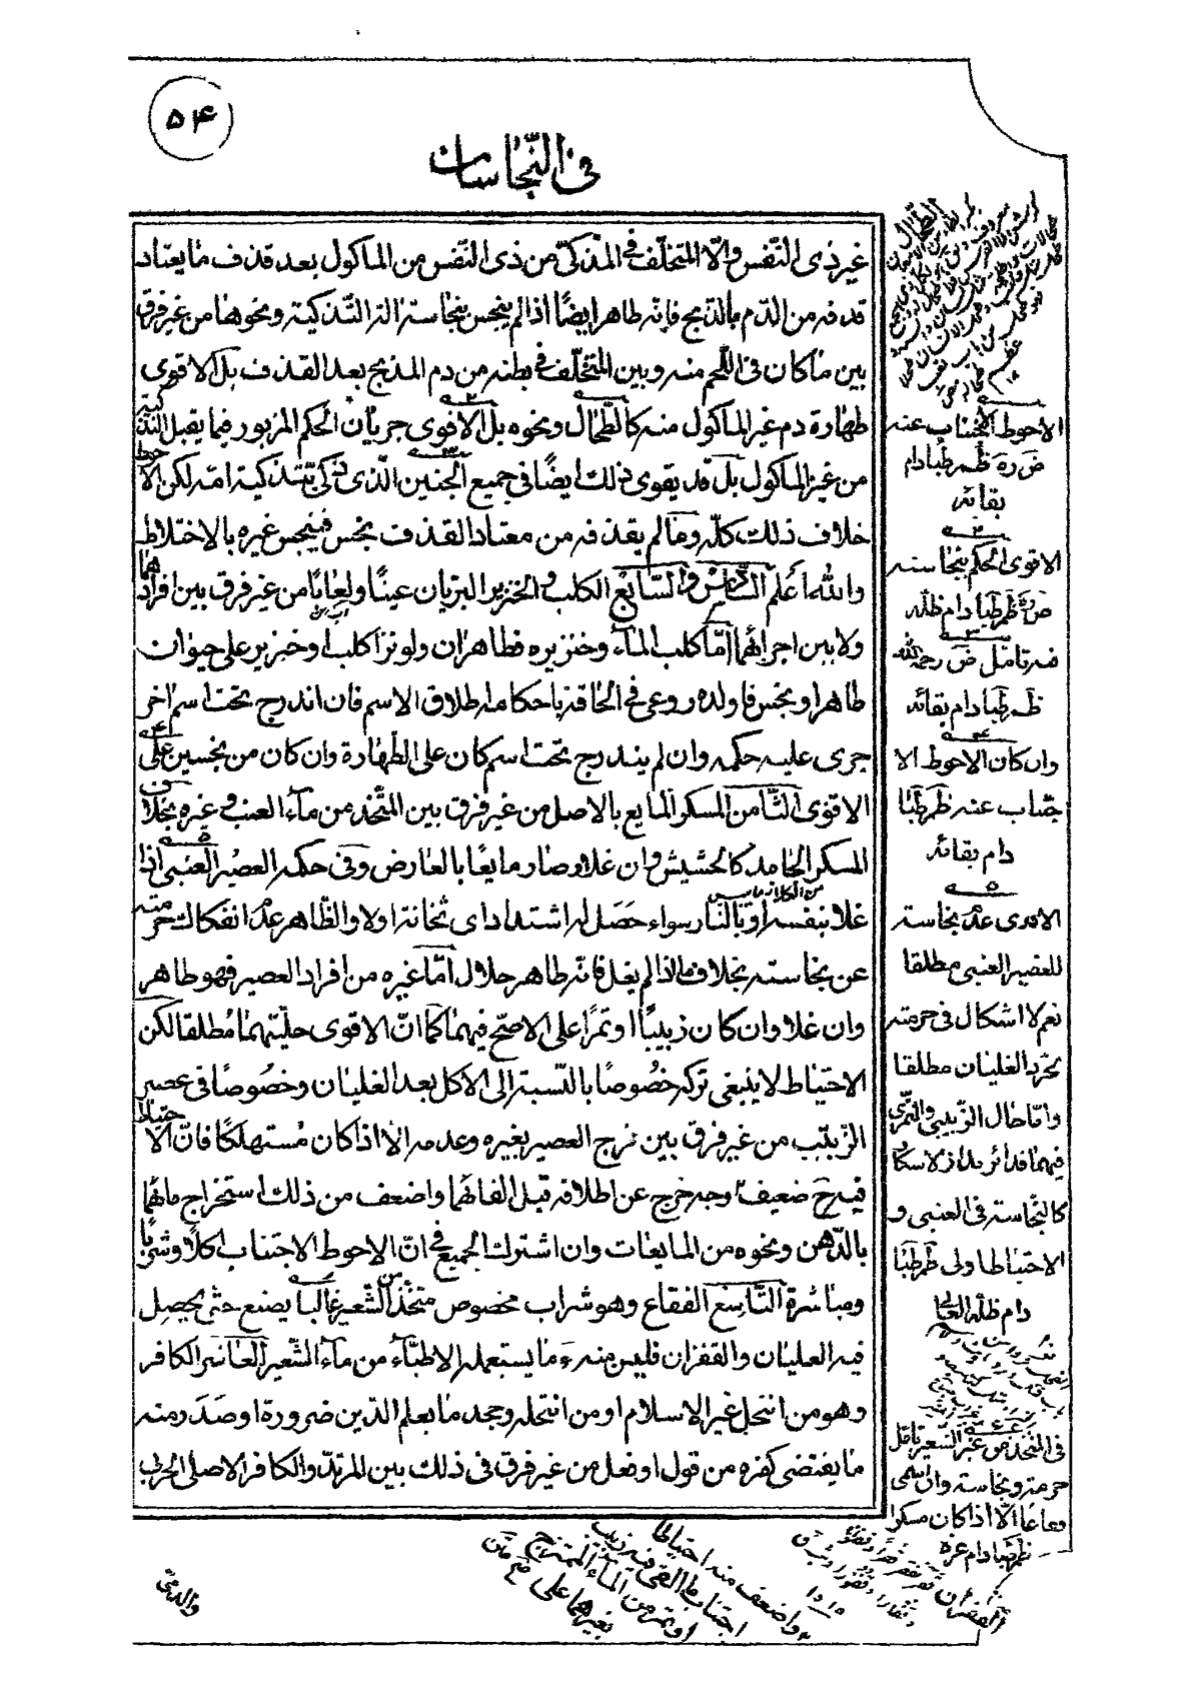 ۵۴
فی النّجاسات
غیر ذی النّفس والّا المتخلّف فی المذکّی من ذی النّفس من المأکول بعد قذف ما یعتاد
قذفه من الدّم بالذّبح فانّه طاهر ایضًا اذا لم ینجس بنجاسة الة التّذکیة ونحوها من غیر فرق
بین ما کان فی اللّحم منه وبین المتخلّف فی بطنه من دم المذبح بعد القذف بل الاقوی
طهارة دم غیر المأکول منه کالطّحال ونحوه بل الاقوی جریان الحکم المزبور فیما یقبل التذکیة
من غیر المأکول بل قد یقوی ذلک ایضًا فی جمیع الجنین الّذی ذکی بتذکیة امّه لکن الاحوط
خلاف ذلک کلّه وما لم یقذفه من معتاد القذف نجس فینجس غیره بالاختلاط
والله اعلم السّادس والسّابع الکلب والخنزیر البرّیان عینًا ولعابًا من غیر فرق بین افرادهما
ولا بین اجزائهما امّا کلب الماء وخنزیره فطاهران ولو نزا کلب او خنزیر علی حیوان
طاهر او نجس فاولده روعی فی الحاقه باحکامه اطلاق الاسم فان اندرج تحت اسم اخر
جری علیه حکمه وان لم یندرج تحت اسم کان علی الطّهارة وان کان من نجسین علی
الاقوی الثّامن المسکر المایع بالاصل من غیر فرق بین المتّخذ من ماء العنب وغیره بخلاف
المسکر الجامد کالحشیش وان غلا وصار مایعًا بالعارض وفی حکمه العصیر العنبی اذا
غلا بنفسه او بالنّار سواء حصل له اشتداد ای ثخانة اولا والظّاهر عدم انفکاک حرمته
عن نجاسته بخلاف ما اذا لم یغل فانّه طاهر حلال امّا غیره من افراد العصیر فهو طاهر
وان غلا وان کان زبیبًا او تمرًا علی الاصحّ فیهما کما انّ الاقوی حلّیّتهما مطلقا لکن
الاحتیاط لا ینبغی ترکه خصوصًا بالنّسبة الی الاکل بعد الغلیان وخصوصًا فی عصیر
الزّبیب من غیر فرق بین مزج العصیر بغیره وعدمه الا اذا کان مستهلکًا فانّ الاحتیاط
فیه ح ضعیف وجه خرج عن اطلاقه قبل القائهما واضعف من ذلک استخراج مائهما
بالدّهن ونحوه من المایعات وان اشترک الجمیع فی انّ الاحوط الاجتناب اکلًا وشربًا
ومباشرة التّاسع الفقاع وهو شراب مخصوص متّخذ من الشّعیر غالبا یصنع حتّی یحصل
فیه الغلیان والقفزان فلیس منه ما یستعمله الاطبّاء من ماء الشّعیر العاشر الکافر
وهو من انتحل غیر الاسلام او من انتحله وجحد ما یعلم الدّین ضرورة او صدر منه
ما یقتضی کفره من قول او فعل من غیر فرق فی ذلک بین المرتدّ والکافر الاصلی الحربی
الاحوط الاجتناب عنه
ض ره ظم طبا دام
بقائه
الاقوی الحکم بنجاسته
ض ره ظم طبا دام ظلّه
فیه تامل ض رحمه الله
ظم طبا دام بقائه
وان کان الاحوط الا
جتناب عنه ظم طبا
دام بقائه
الاقوی عدم نجاسة
للعصیر العنبی مطلقا
نعم لا اشکال فی حرمته
بمجرّد الغلیان مطلقا
وامّا حال الزّبیبی والتّمری
کالنّجاسة فی العنبی و
الاحتیاط اولی ظم طبا
دام ظلّه العالی
فی المتّخذ من غیر الشعیر تامّل
حرمته ونجاسته وان سمی
فقاعًا الّا اذا کان مسکرا
ظم طبا دام عزّه
واضعف منه احتیاطا
اجتناب ما القی فیه زبیب
او تمر من الماء الممتزج
بغیرهما علی
والذمّی